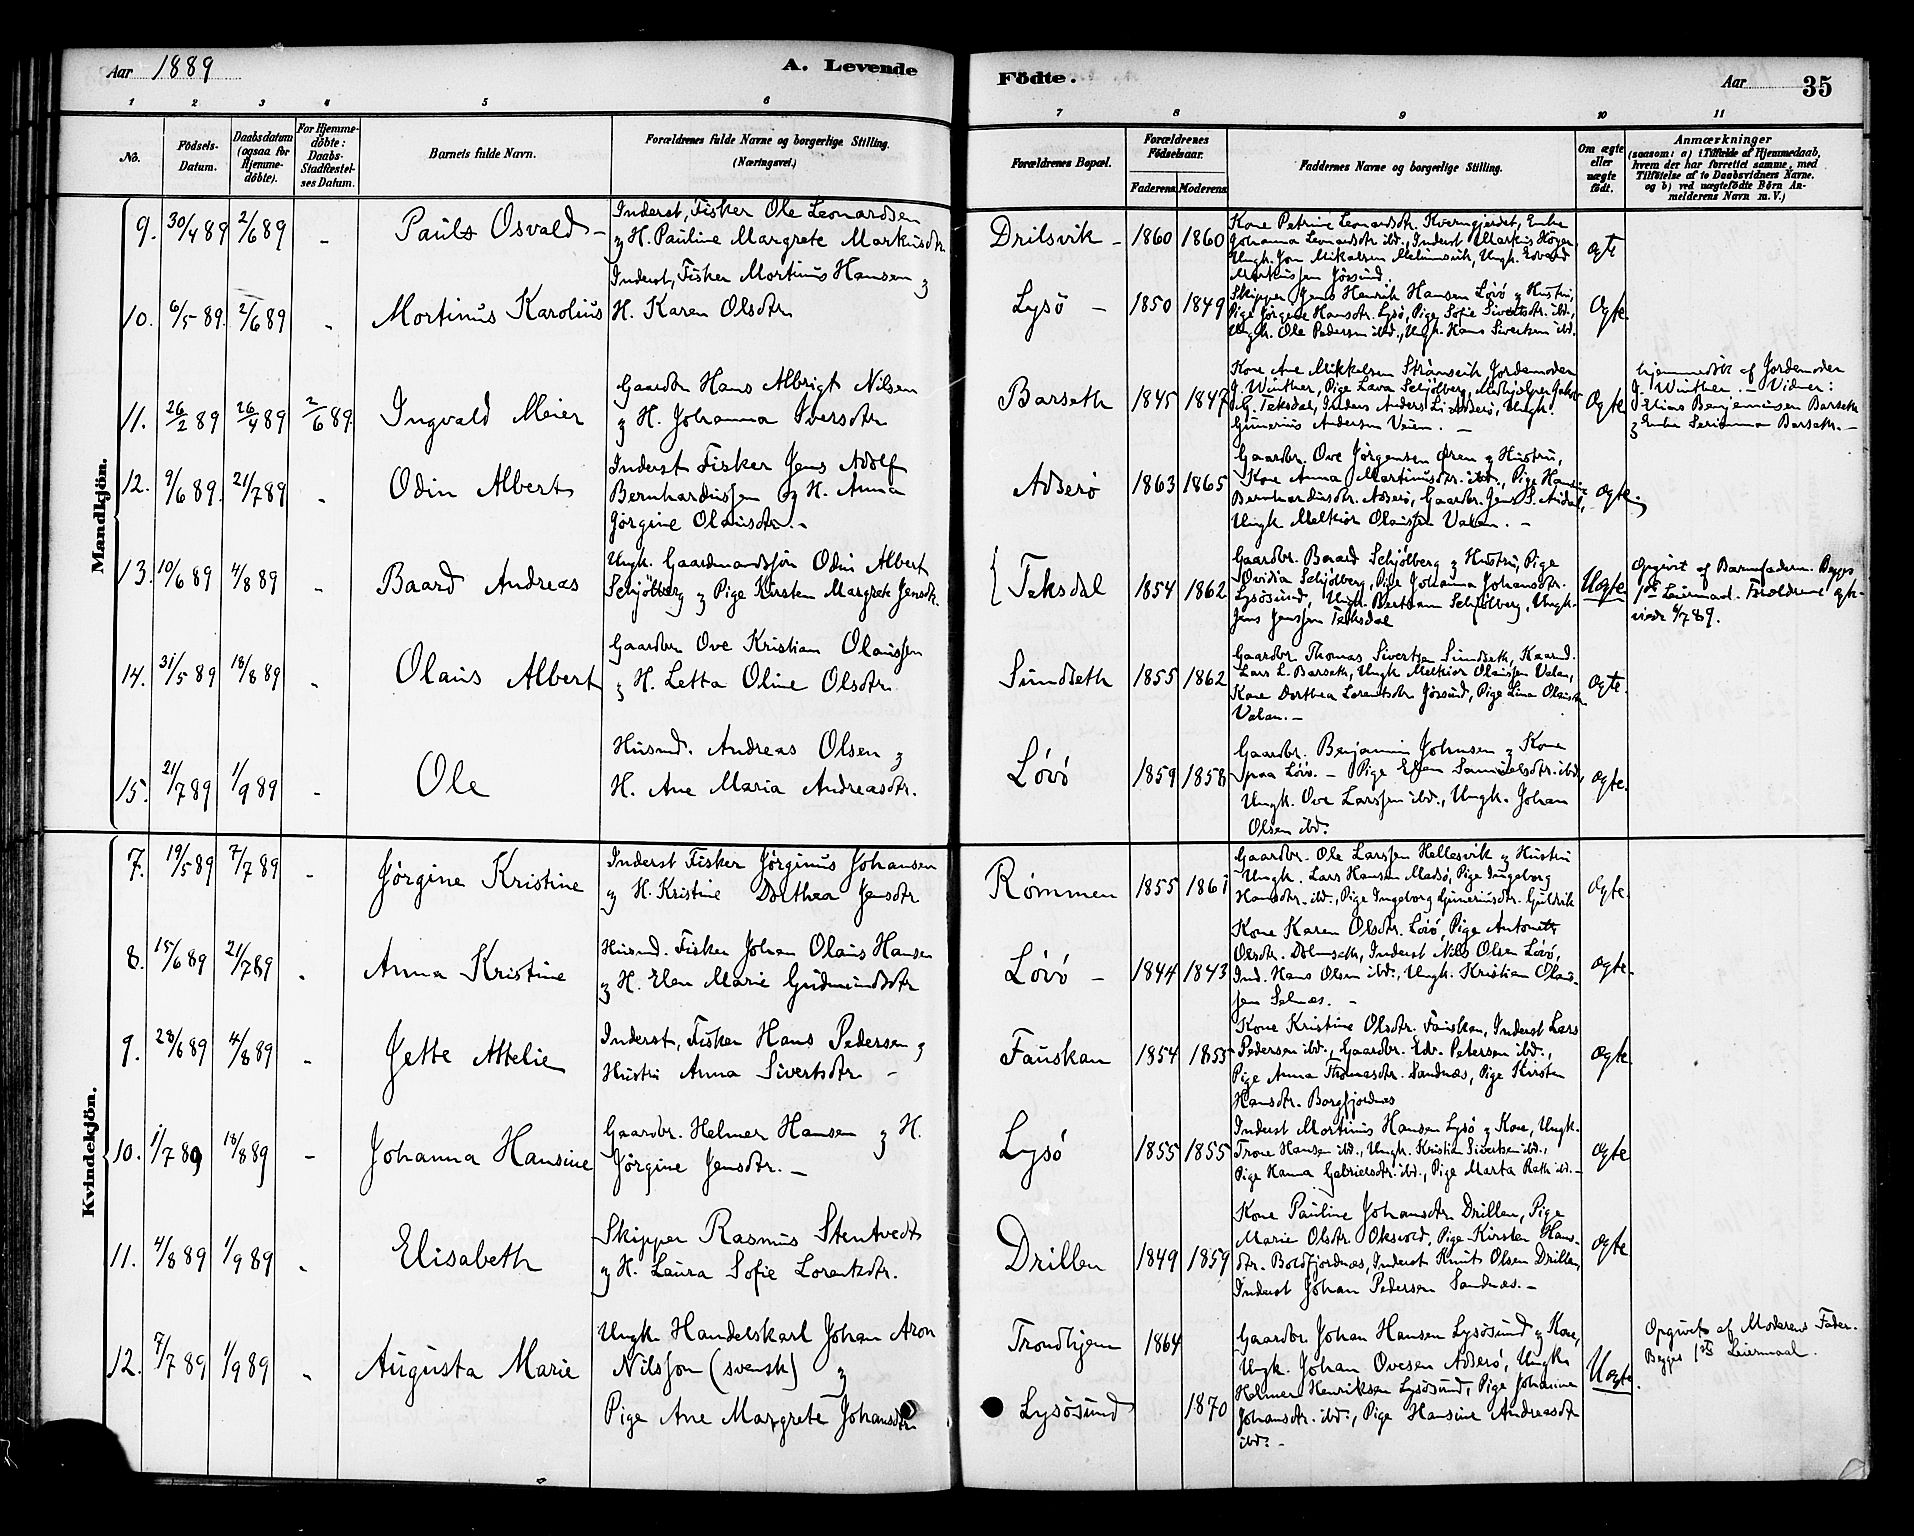 Aar 1889 A. Levende Födte. Aar 35
1 2 3 4 5 6 7 8 9 10 11
No.
Födsels-Datum.
Daabsdatum (ogsaa for Hjemmedöbte).
For Hjemmedöbte: Daabs-Stadfæstelses Datum.
Barnets fulde Navn.
Forældrenes fulde Navne og borgerlige Stilling. (Næringsvei.)
Forældrenes Bopæl.
Forældrenes Födselsaar.
Faderens. Moderens.
Faddernes Navne og borgerlige Stilling.
Om ægte eller uægte födt.
Anmærkninger
(saasom: a) i Tilfælde af Hjemmedaab,
hvem der har forrettet samme, med
Tilföielse af to Daabsvidners Navne,
og b) ved uægtefödte Börn An-
melderens Navn m. V.)
Mandkjön.
9. 30/4 89 2/6 89 - Pauls Osvald -
Inderst, Fisker Ole Leonardsen
& H. Pauline Margrete Markusdtr.
Drilsvik - 1860 1860
Kone Petrine Leonardsdtr. Kverngjerdet, Enke
Johanna Leonardsdtr ibd., Inderst Markus
Ungk. Jon Mikalsen Ungk. Edvard
Markussen Jøssund.
ægte
10. 6/5 89. 2/6 89 - Mortinus Karolius
Inderst, Fisker Mortinus Hansen &
H. Karen Olsdtr
Lysö - 1850 1849
Skipper Jens Henrik Hansen Lövö & Hustru,
Pige Jörgine Hansdtr. Lysö, Pige Sofie Sivertsdtr. ibd.,
Ungk. Ole Pedersen ibd., Ungk. Hans Sivertsen ibd.
Ægte.
11. 26/2 89 26/4 89 2/6 89. Ingvald Meier
Gaardbr Hans Albrigt Nilsen
& H. Johanna Iversdtr
Barseth 1845 1847
Kone Ane Mikkelsen Strömsvik Jordemoder
J. Winther, Pige Lava Schjölberg,
G. Teksdal, Anders Adserö, Ungk.
Gunerius Andersen Veien. -
Ægte
hjemmedöbt af Jordemoder
J. Winther. - Vidner:
Elias Benjaminsen Barseth
& Enke Barseth. -
12. 9/6 89. 21/7 89 - Odin Albert
Inderst Fisker Jens Adolf
Bernhardussen og H. Anna
Jörgine Olausdtr. -
Adserö 1863 1865
Gaardbr. Ove Jörgensen Øren & Hustru,
Kone Anna Martinusdtr. ibd., Pige Hansine
Bernhardusdtr. Adserö, Gaardbr. Jens S.
Ungk Melkior Olaussen Valan. -
ægte.
13. 10/6 89 4/8 89 - Baard Andreas
Ungk. Gaardmandssön Odin Albert
Schjölberg & Pige Kirsten Margrete Jensdtr.
Teksdal 1854 1862
Gaardbr. Baard Schjölberg & Hustru, Pige
Ovidia Schjölberg, Pige Johanna Johansdtr.
Lysösund, Ungk. Bertram Schjölberg, Ungk.
Jens Jenssen Teksdal
Uægte
Opgivet af Barnefaderen. Begges
1ste Leiermaal. Forældrene ægte-
viede 4/7 89.
14. 31/5 89 18/8 89 - Olaus Albert
Gaardbr Ove Kristian Olaussen
& H. Letta Oline Olsdtr.
Sundseth 1855 1862
Gaardbr Thomas Sivertsen Sundseth, Kaarmd.
Lars L. Barseth, Ungk Melkior Olaussen Valan,
Kone Dorthea Lorentsdtr Jössund, Pige Lina Olausdtr
Valan. -
ægte.
15. 21/7 89 1/9 89 - Ole
Husmd. Andreas Olsen &
H. Ane Maria Andreasdtr.
Lövö 1859 1858
Gaardbr. Benjamin Johnsen & Kone
paa Lövö. - Pige Ellen Samuelsdtr. ibd.,
Ungk. Ove Larssen ibd., Ungk. Johan
Olsen ibd.
ægte.
Kvindekjön.
7. 19/5 89 7/7 89 - Jörgine Kristine
Inderst Fisker Jörginus Johansen
& H. Kristine Dorthea Jensdtr
Römmen 1855 1861
Gaardbr. Ole Larssen Hellesvik & Hustru
Ungk. Lars Hansen Madsö, Pige Ingeborg
Hansdtr. ibd., Pige Ingeborg Guneriusdtr. Gulvik
ægte.
8. 15/6 89 21/7 89 - Anna Kristine
Husmd. Fisker Johan Olaus Hansen
& H. Elen Marie Gudmundsdtr
Lövö - 1844 1843
Kone Karen Olsdtr. Lövö, Pige Antonette
Olsdtr. Dolmseth, Inderst Nils Olsen Lövö,
Ind. Hans Olsen ibd., Ungk. Kristian Olaus-
sen Selnæs. -
ægte.
9. 28/6 89 4/8 89 - Jette Attelie
Inderst, Fisker Hans Pedersen &
Hustru Anna Sivertsdtr -
Fauskan 1854 1855
Kone Kristine Olsdtr. Fauskan, Inderst Lars
Pedersen ibd., Gaardbr. Edv. Petersen ibd.,
Pige Anna Thomasdtr. Sandnæs, Pige Kirsten
Hansdtr. Borgfjordnæs
ægte
10. 1/7 89 18/8 89 - Johanna Hansine
Gaardbr. Helmer Hansen & H.
Jörgine Jensdtr. -
Lysö 1855 1855
Inderst Mortinus Hansen Lysö & Kone, Ungk.
Trone Hansen ibd., Ungk. Kristian Sivertsen ibd.,
Pige Hanna Gabrielsdtr. ibd., Pige Marta Rath ibd. -
ægte
11. 4/8 89 1/9 89 - Elisabeth
Skipper Rasmus Stentvedt
& H. Laura Sofie Lorentsdtr.
Drillen 1849 1859
Kone Pauline Johansdtr Drillen, Pige
Marie Olsdtr. Oksvold, Pige Kirsten Hans-
dtr. Boldfjordnæs, Inderst Knut Olsen Drillen,
Inderst Johan Pedersen Sandnæs. -
ægte
12. 7/7 89 1/9 89 - Augusta Marie
Ungk Handelskarl Johan Aron
Nilsson (svensk) &
Pige Ane Margrete Johansdtr
Trondhjem 1864
Lysösund 1870
Gaardbr Johan Hansen Lysösund & Kone,
Ungk. Johan Ovesen Adserö, Ungk
Helmer Henriksen Lysösund, Pige Johanne
Johansdtr. ibd., Pige Hansine Andreasdtr
ibd. -
Uægte.
Opgivet af Moderens Fader.
Begges 1ste Leiermaal.